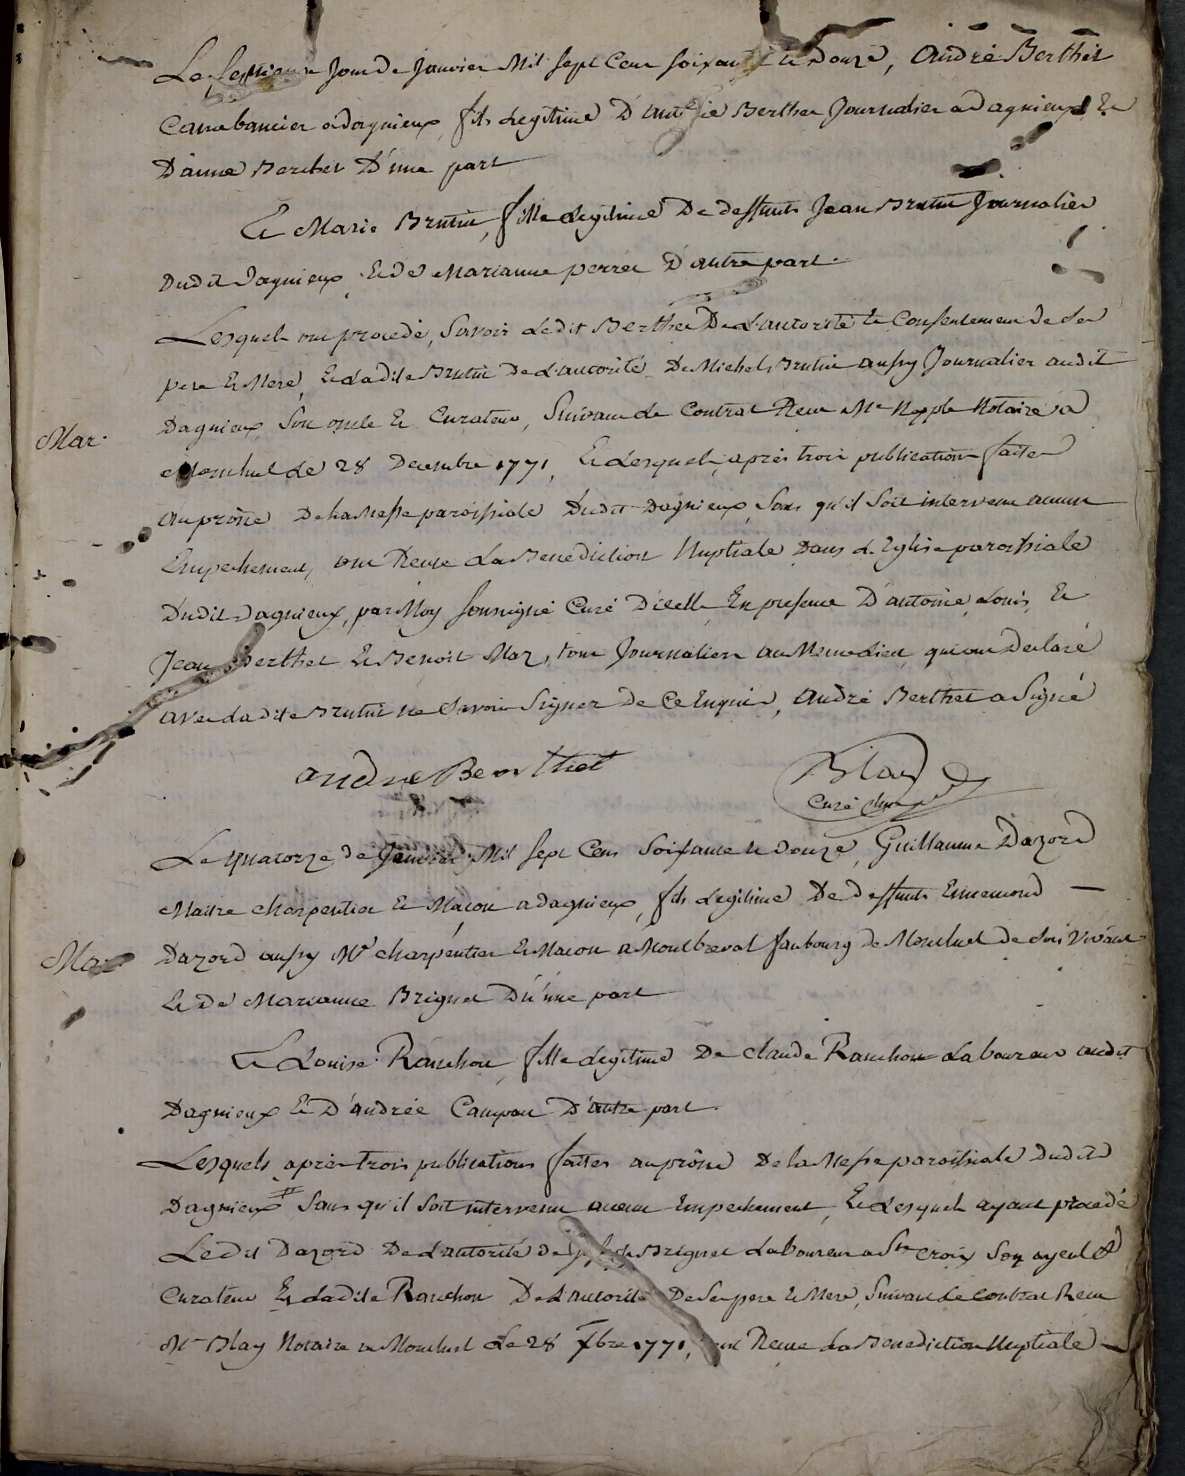 Le septieme Jour de Janvier Mil sept Cent soixante et Douze, André Berthet
à dagnieux, fils Legitime D'
Berthet Journalier a dagnieux Et
D'anne Berthet D'une part
Et Marie Brutin, fille Legitime De deffunts Jean Brutin Journalier
Dudit Dagnieux, Et de Marianne perret D'autre part.
Lesquels ont procedé, Savoir Ledit Berthet De L'autorité et Consentement de Ses
pere Et Mere, Et Ladite Brutin De L'autorité De Michel Brutin aussy Journalier audit
Mar.
Dagnieux, Son oncle Et Curateur, Suivant Le Contrat Reçu Me Nepple Notaire a
Monluel Le 28 Decembre 1771, Et Lesquels, après trois publications faites
au prône De la Messe paroissiale Dudit Dagnieux, Sans qu'il Soit intervenu aucun
Empechement, ont Reçue La Benediction Nuptiale Dans L'Eglise paroissiale
Dudit Dagnieux, par Moy soussigné Curé D'icelle En presence D'antoine, Louis, Et
Jean Berthet Et Benoit Maz, tous Journaliers au Meme Lieu, qui ont Declaré
avec Ladite Brutin ne Savoir Signer De Ce Enquis, André Berthet a Signé
andre Berthet
Curé
Le quatorze de Janvier Mil sept Cens Soixante et Douze, Guillaume Dazord
Maitre charpentier Et Maçon a dagnieux, fils Legitime De deffunts Ennemond
Mar.
Dazord aussy Me charpentier Et Macon a Montbreval faubourg de Monluel de Son Vivant
Et De Marianne Brignet D'une part
Et Louise Ranchon, fille Legitime De Claude Ranchon Laboureur audit
Dagnieux Et D'andrée Campan D'autre part.
Lesquels après trois publications faites au prône De la Messe paroissiale Dudit
Dagnieux # Sans qu'il Soit intervenu aucun Empechement, Et Lesquels ayant procedé
Ledit Dazord De L'autorité de Brignet Laboureur a Ste Croix Son ayeul Et
Curateur Et Ladite Ranchon De L'autorité De Ses pere Et Mere, Suivant Le Contrat Reçu
Me Blay Notaire a Monluel Le 28 Xbre 1771, ont Reçue La Benediction Nuptiale